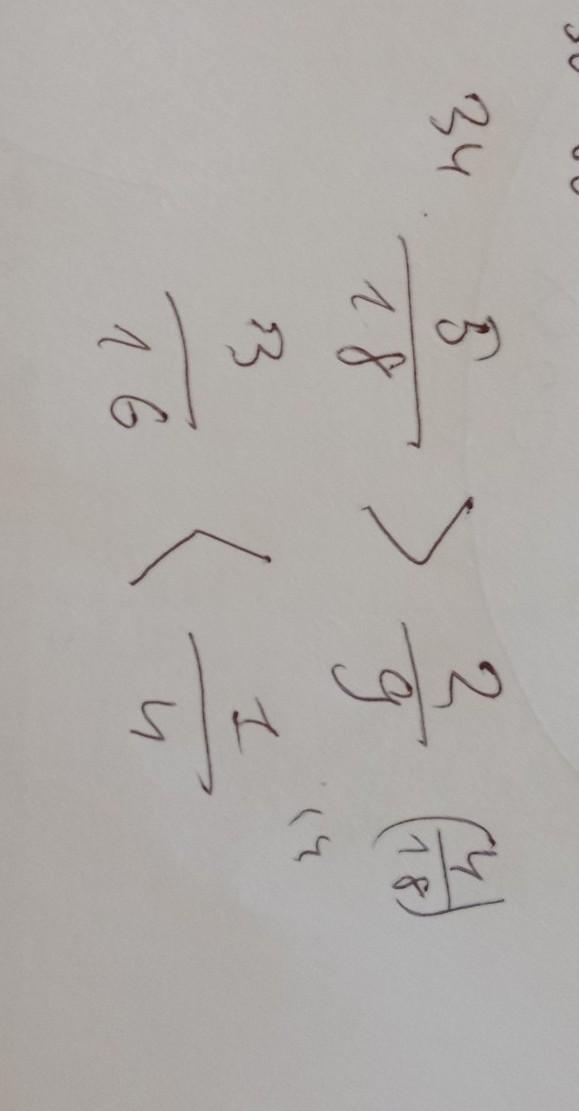 34. 5/18 > 2/9 (4/18)
3/16 < 1/4